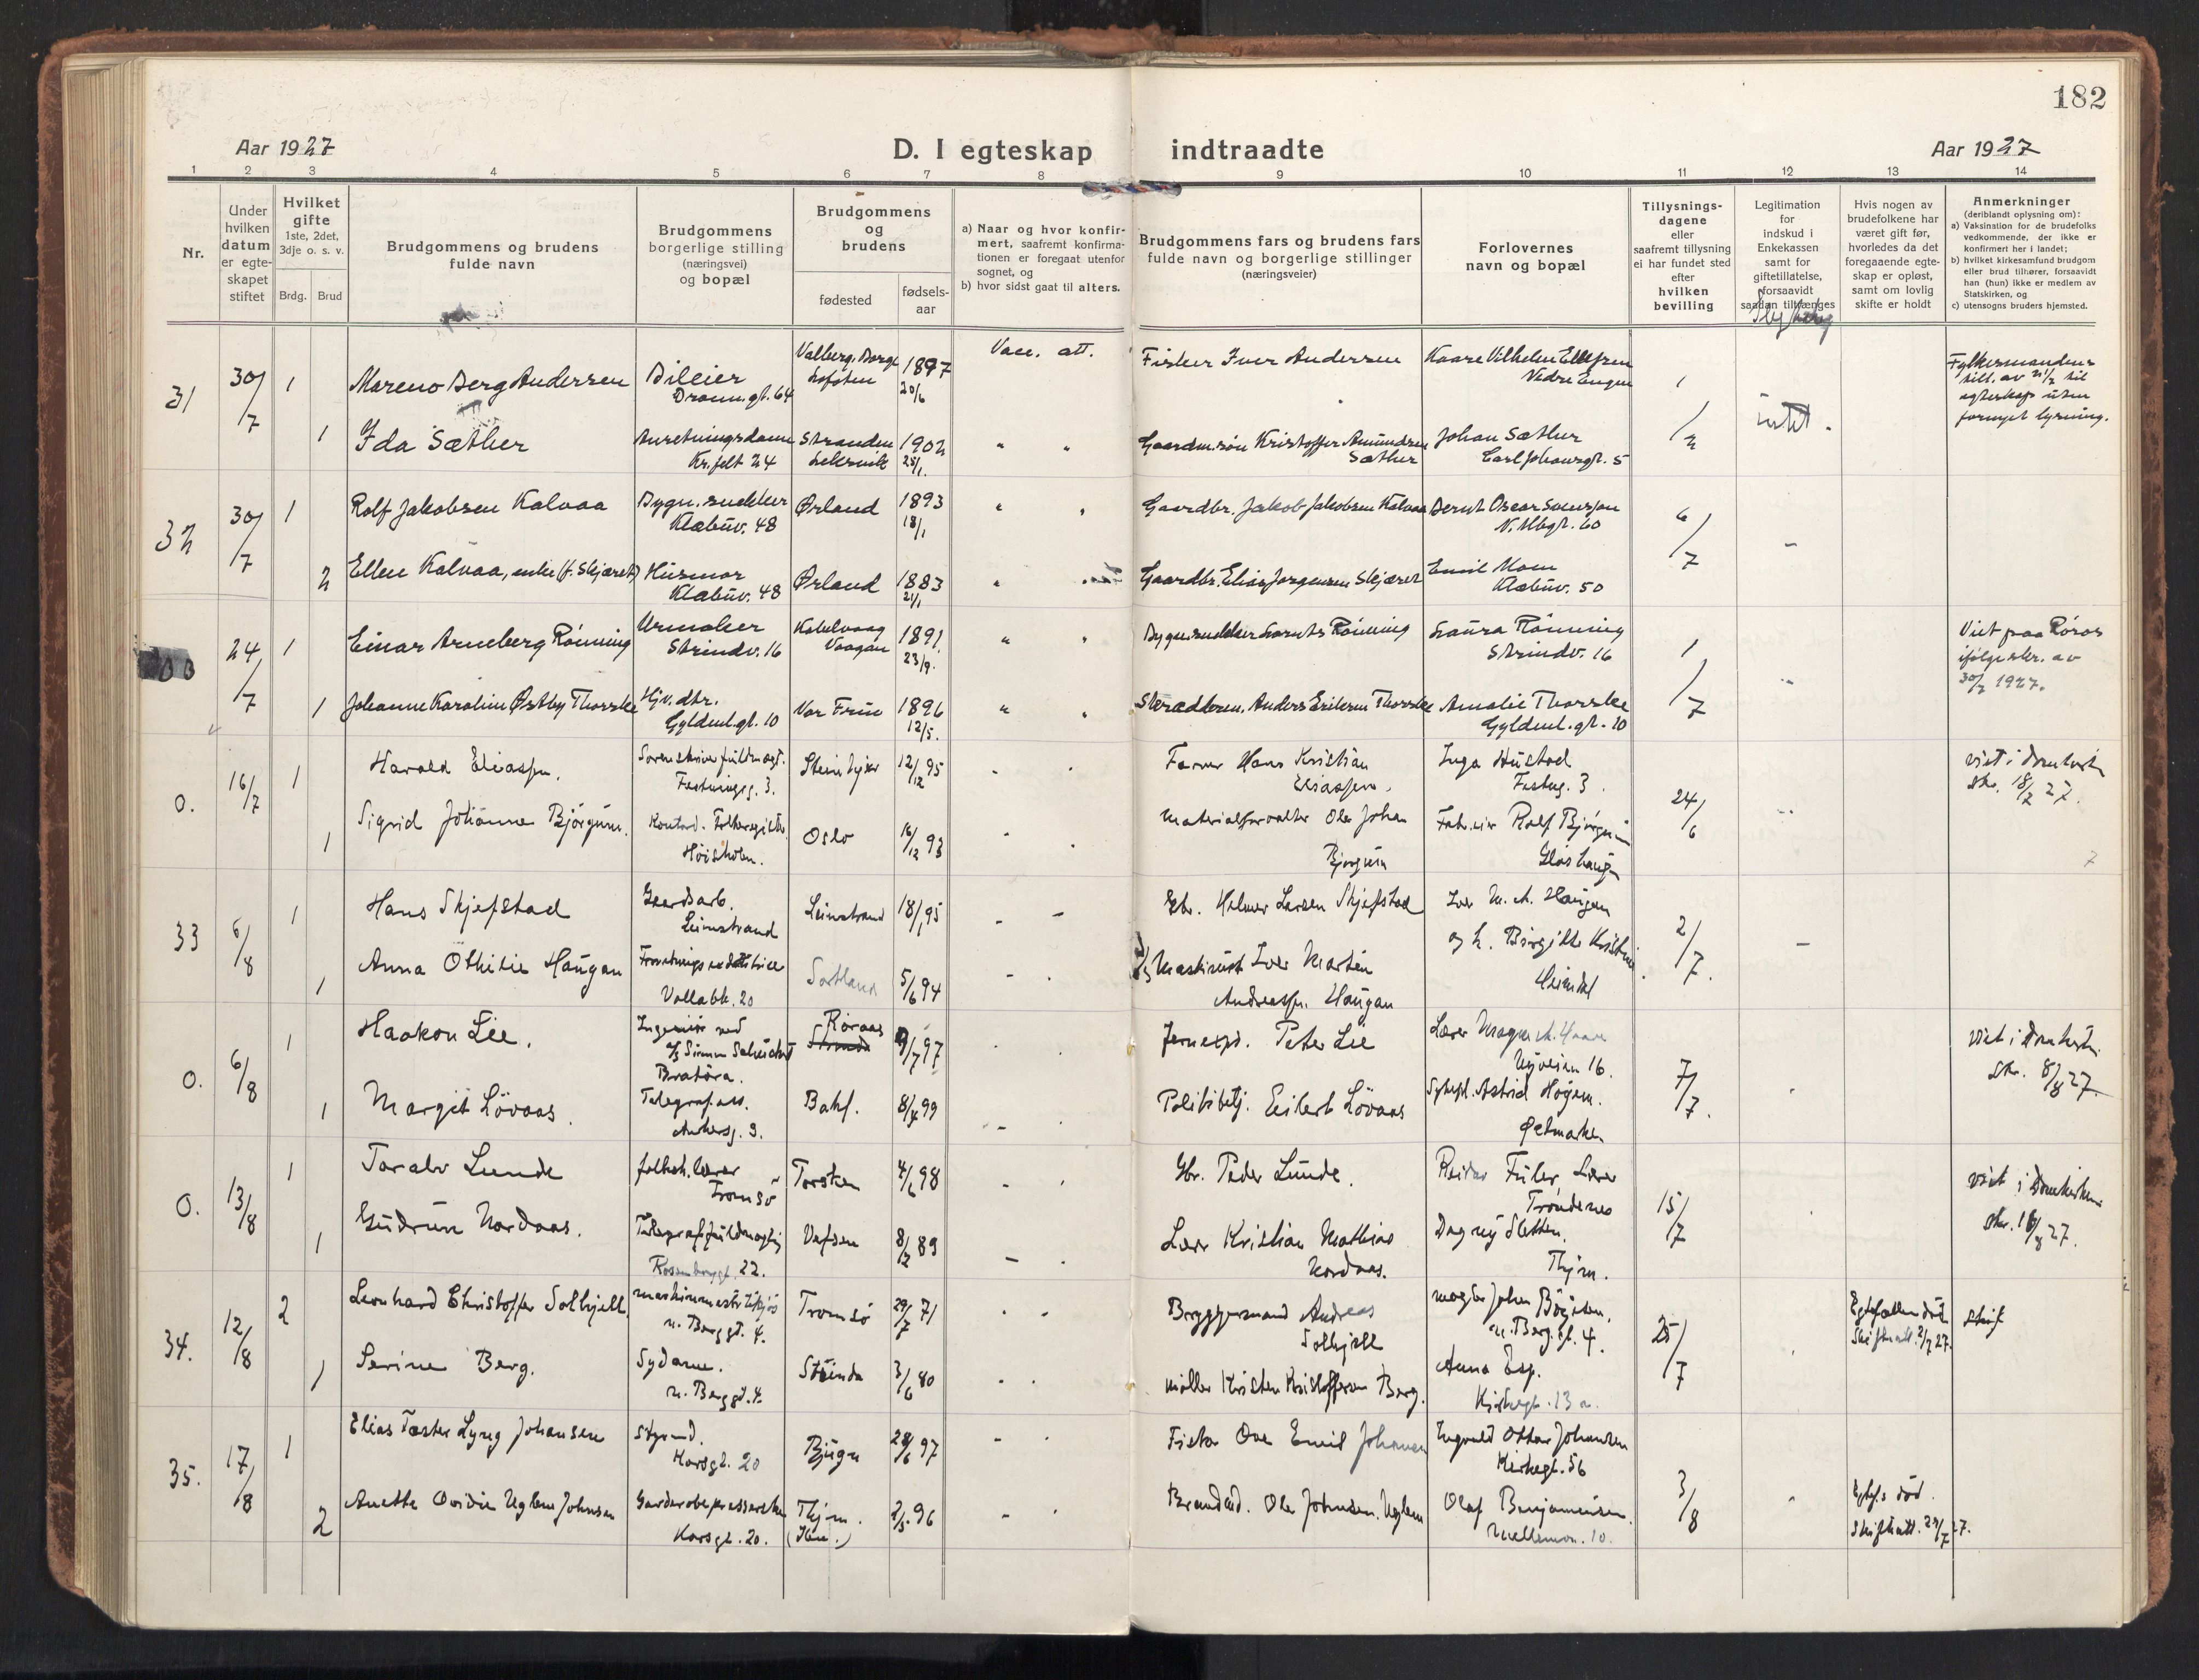 182
Aar 1927
D. I egteskap indtraadte
Aar 1927
1 2 3 4 5 6 7 8 9 10 11 12 13 14
Nr.
Under hvilken datum er egte-skapet stiftet
Hvilket gifte 1ste, 2det, 3dje o. s. v.
Brdg. Brud
Brudgommens og brudens fulde navn
Brudgommens borgerlige stilling (næringsvei) og bopæl
Brudgommens og brudens
fødested
fødsels-aar
a) Naar og hvor konfir-mert, saafremt konfirma-tionen er foregaat utenfor sognet, og
b) hvor sidst gaat til alters.
Brudgommens fars og brudens fars fulde navn og borgerlige stillinger (næringsveier)
Forlovernes navn og bopæl
Tillysnings-dagene eller saafremt tillysning ei har fundet sted efter hvilken bevilling
Legitimation for indskud i Enkekassen samt for giftetillatelse, forsaavidt saadan tiltrænges
Hvis nogen av brudefolkene har været gift før, hvorledes da det foregaaende egte-skap er opløst, samt om lovlig skifte er holdt
Anmerkninger (deriblandt oplysning om):
a) Vaksination for de brudefolks vedkommende, der ikke er konfirmert her i landet;
b) hvilket kirkesamfund brudgom eller brud tilhører, forsaavidt han (hun) ikke er medlem av Statskirken, og
c) utensogns bruders hjemsted.
31 30/7 1 Mareno Berg Andersen Bileier Dronn.gt. 64 Valberg, Borge Lofoten 1897 20/6 Vacc. att. Fisker Iver Andersen Kaare Vilhelm Ellefsen Nedre Enger
1 Ida Sæther Anretningsdame Kr.felt 24 Stranden Leksvik 1902 28/1 " " Gaardm.søn Kristoffer Amundsen Sæther Johan Sæther Carl Johansgt. 5 1/2 intet.
Fylkesmandens till. av 21/7 til egteskap uten fornyet lysning.
32 30/7 1 Rolf Jakobsen Kalvaa Bygn.snekker Klæbuv. 48 Ørland 1893 18/1 Gaardbr. Jakob Jakobsen Kalvaa Bernt Oscar Svensson 6/7 -
2 Ellen Kalvaa, enke (f. Skjæret) Husmor Klæbuv. 48 Ørland 1883 21/1 Gaardbr. Elias Jørgensen Skjæret Emil Moen Klæbuv. 50
24/7 1 Einar Arneberg Rönning Urmaker Strindv. 16 Kabelvaag Vaagan 1891 23/9. Bygn.snekker Lorents Rönning Laura Rönning Strindv. 16 1/7
Viet paa Röros ifölge skr. av 30/7 1927.
1 Johanne Karoline Østby Thorske Hjv. dtr. Gyldenl.gt. 10 Vor Frue 1896 12/5. Skrædderm. Anders Eriksen Thorske Amalie Thorske Gyldenl.gt. 10
0. 16/7 1 Harald Eliassen. Sorenskriverfuldmægt. Festningsg. 3. Steinkjer 12/12 95 Farver Hans Kristian Eliassen. Inga Hustad Festng. 3 24/6
viet i Domkirken skr. 18/7 27.
1 Sigrid Johanne Björgum. Oslo 16/12 93 Materialforvalter Ole Johan Bjorgum Rolf Björgum
33 6/8 1 Hans Skjefstad Gaardsarb. Leinstrand Leinstrand 18/1 95 - - Gbr. Helmer Larsen Skjefstad Iver M. A. Haugan og h. Birgitte Kristine Heimdal 2/7. -
1 Anna Othilie Haugan Vollabk. 20 Sortland 5/6 94 - Maskinist Iver Martin Andreassen Haugan
0. 6/8 1 Haakon Lie. Ingeniör ved Bratöra. Röraas 9/7 97 Jernexpd. Peter Lie Lærer 7/7.
viet i Domkirken skr. 8/8 27.
1 Margit Lövaas. Telegrafass. Bakl. 8/4 99 Politibetj. Eilert Lövaas Sykepl. Astrid Høyem.
0. 13/8 1 Toralv Lunde folksk. lærer Tromsö Torsken 4/6 98 - Gbr. Peder Lunde. Reidar Lærer Trondenes 15/7
viet i Domkirken skr. 16/8 27.
1 Gudrun Nordaas. Telegraffuldmægtig Rosenborggt. 22. Vefsen 8/12 89 - Lærer Kristian Mathias Nordaas. Dagny Sletten.
34. 12/8 2 Leonhard Christoffer Solhjell. n. Berggt. 4. Tromsö 29/7 71 Bryggjermand Andreas Solhjell n. Berg.gt. 4. 25/7 Egtefællen död skifteatt. 2/7 27. skift
1 Serine Berg. Sydame. n. Berggt. 4. Strinda 3/6 80 Möller Kristen Kristofferson Berg. Anna Esp. Kirkegt. 13 a.
35. 17/8 1 Elias Tæster Lyng Johansen Styrmd. Korsgt. 20 Bjugn 28/6 97 - Fisker Ove Emil Johansen Ingvald Ottar Johansen Kirkegt. 56 3/8
2 Anette Ovidie Uglem Johnsen Garderobepresserske Korsgt. 20. 2/5. 96 - Ole Johnsen Uglem Olaf Benjaminsen. Mellemv. 10. Egtef. död. Skifteatt. 29/7 27.